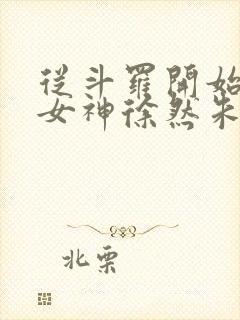 從斗羅開始
女神徐然朱
北栗